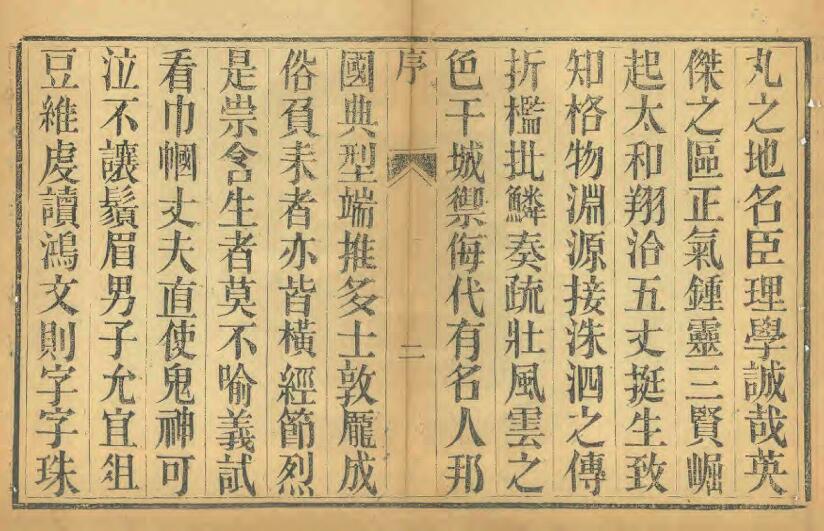 丸之地名臣理學誠哉英
傑之區正氣鍾靈三賢崛
起太和翔洽五丈挺生致
知格物淵源接洙泗之傳
折檻批鱗奏疏壯風雲之
色干城禦侮代有名人邦
序
二
國典型端推多士敦龐成
俗負耒者亦皆橫經節烈
是崇含生者莫不喻義試
看巾幗丈夫直使鬼神可
泣不讓鬚眉男子允宜俎
豆維虔讀鴻文則字字珠